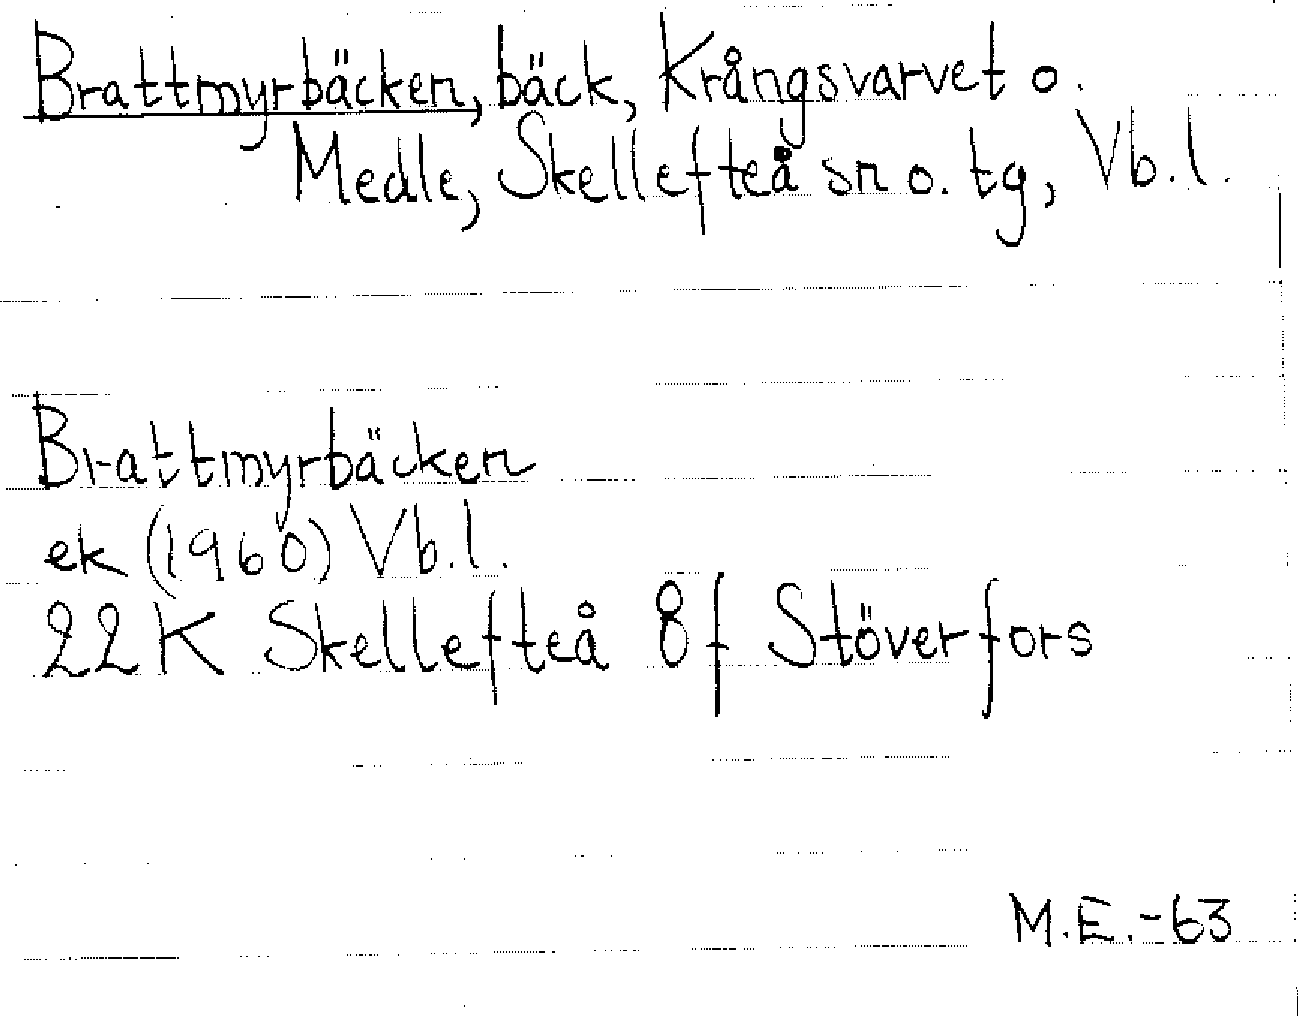 Brattmyrbäcken, bäck, Krångsvarvet o.
Medle, Skellefteå sn o. tg, Vb.l.
Brattmyrbäcken
ek (1960) Vb.l.
22K Skellefteå 8f Stöverfors
M.E.-63